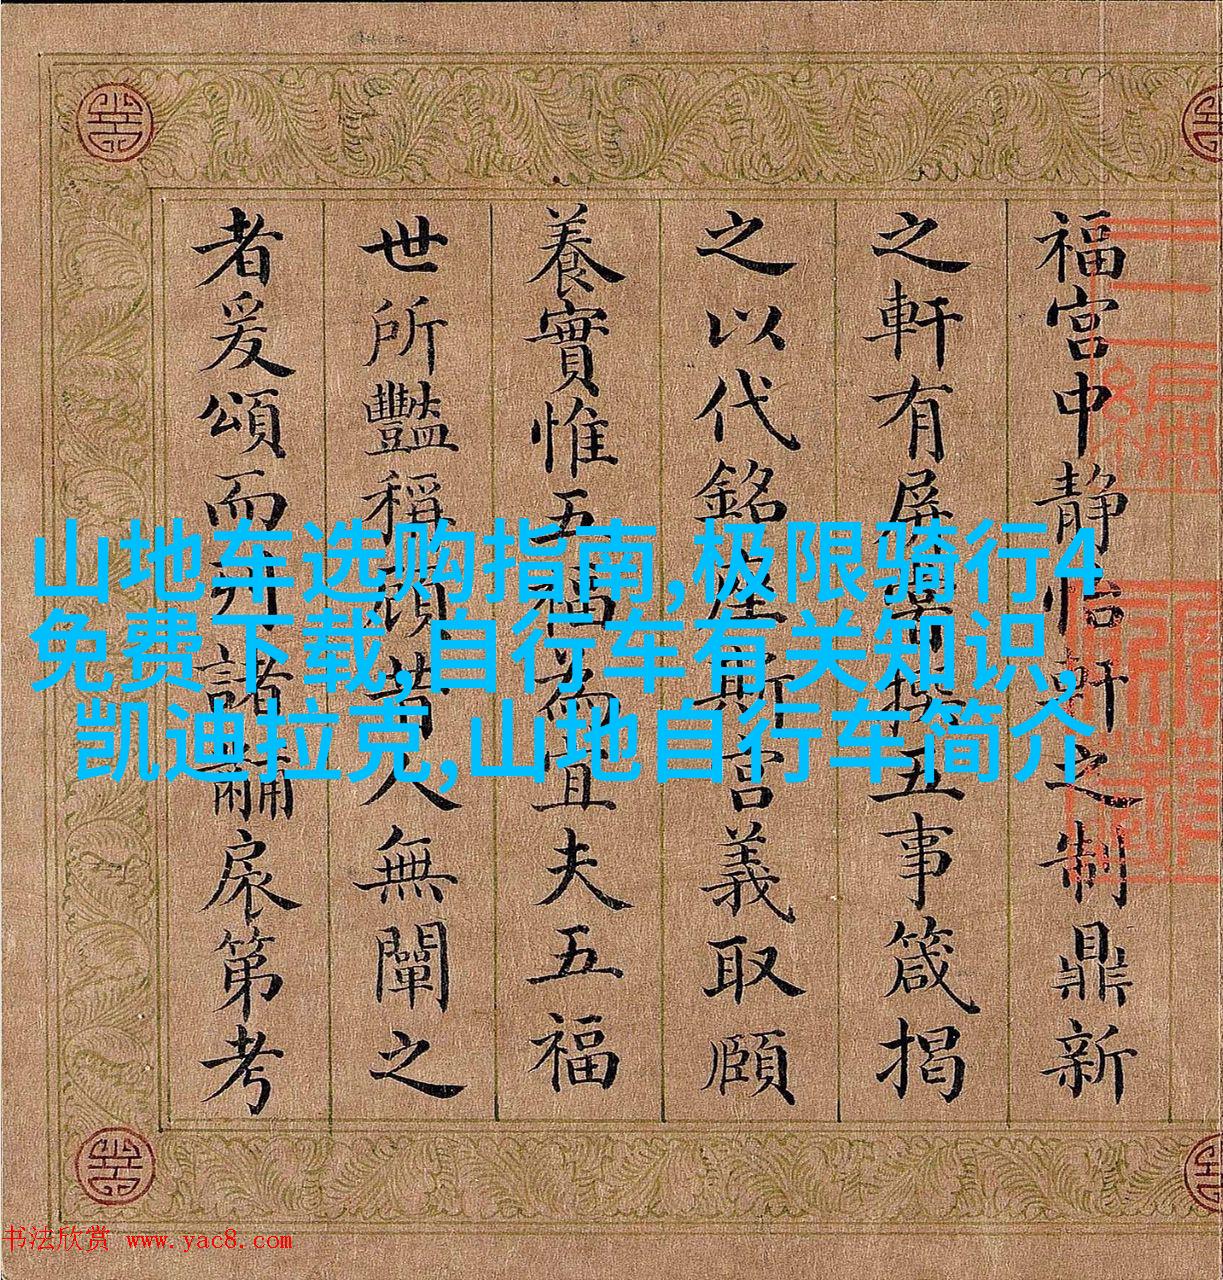 福宮中静怡軒之制鼎新
之軒有屏五事箴揭
之以代銘座斯宮義取頤
養實惟五福為宜夫五福
世所豔稱昔人無闡之
者爰頌而諸黼扆第考
山地车选购指南,极限骑行4
免费下载,自行车有关知识,
凯迪拉克,山地自行车简介
书法欣赏 www.yac8.com